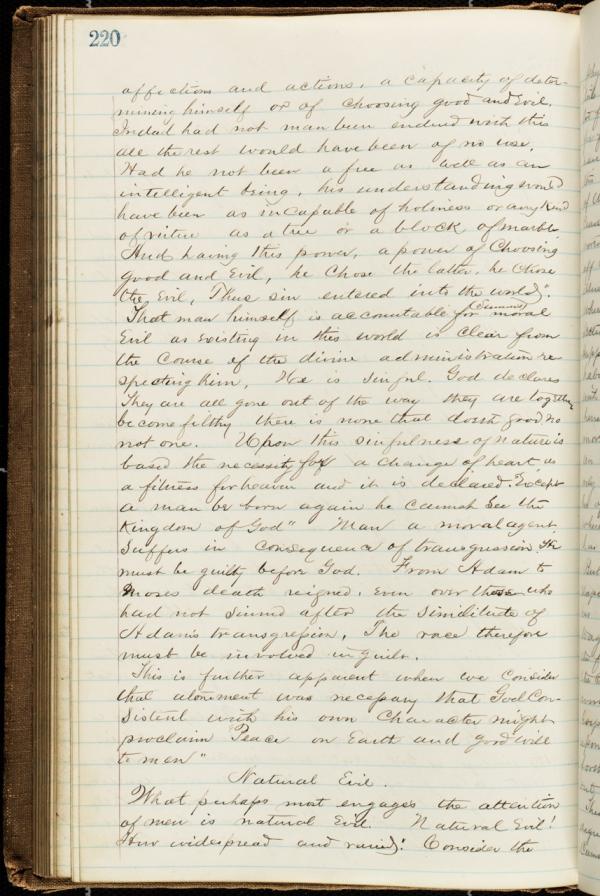 220
affections and actions, a capacity of deter-
mining himself or of choosing good and Evil.
Indeed had not man been endued with this
all the rest would have been of no use.
Had he not been a free as well as an
intelligent being, his understanding would
have been as incapable of holiness or any kind
of virtue as a tree or a block of marble.
And having this power, a power of Choosing
good and Evil, he Chose the latter, he Chose
the Evil, Thus sin entered into the world".
That man himself is accountable for moral
Evil as Existing in this world is Clear from
the Course of the divine administration re
specting him. He is Sinful. God declares
They are all gone out of the way they are together
become filthy there is none that doeth good no
not one. Upon this sinfulness of nature is
based the necessity for a change of heart as
a fitness for heaven and it is declared "Except
a man be born again he cannot See the
Kingdom of God" Man a moral agent
suffers in consequence of transgression He
must be guilty before God. From Adam to
Moses death reigned, even over those who
had not sinned after the Similitude of
Adam's transgression. The race therefore
must be involved in guilt.
This is further apparent when we Consider
that atonement was necessary that God Con-
sistent with his own Character might
proclaim "Peace on Earth and good will
to men"
Natural Evil.
What perhaps most engages the attention
of men is natural Evil. Natural Evil!
How widespread and varied! Consider the